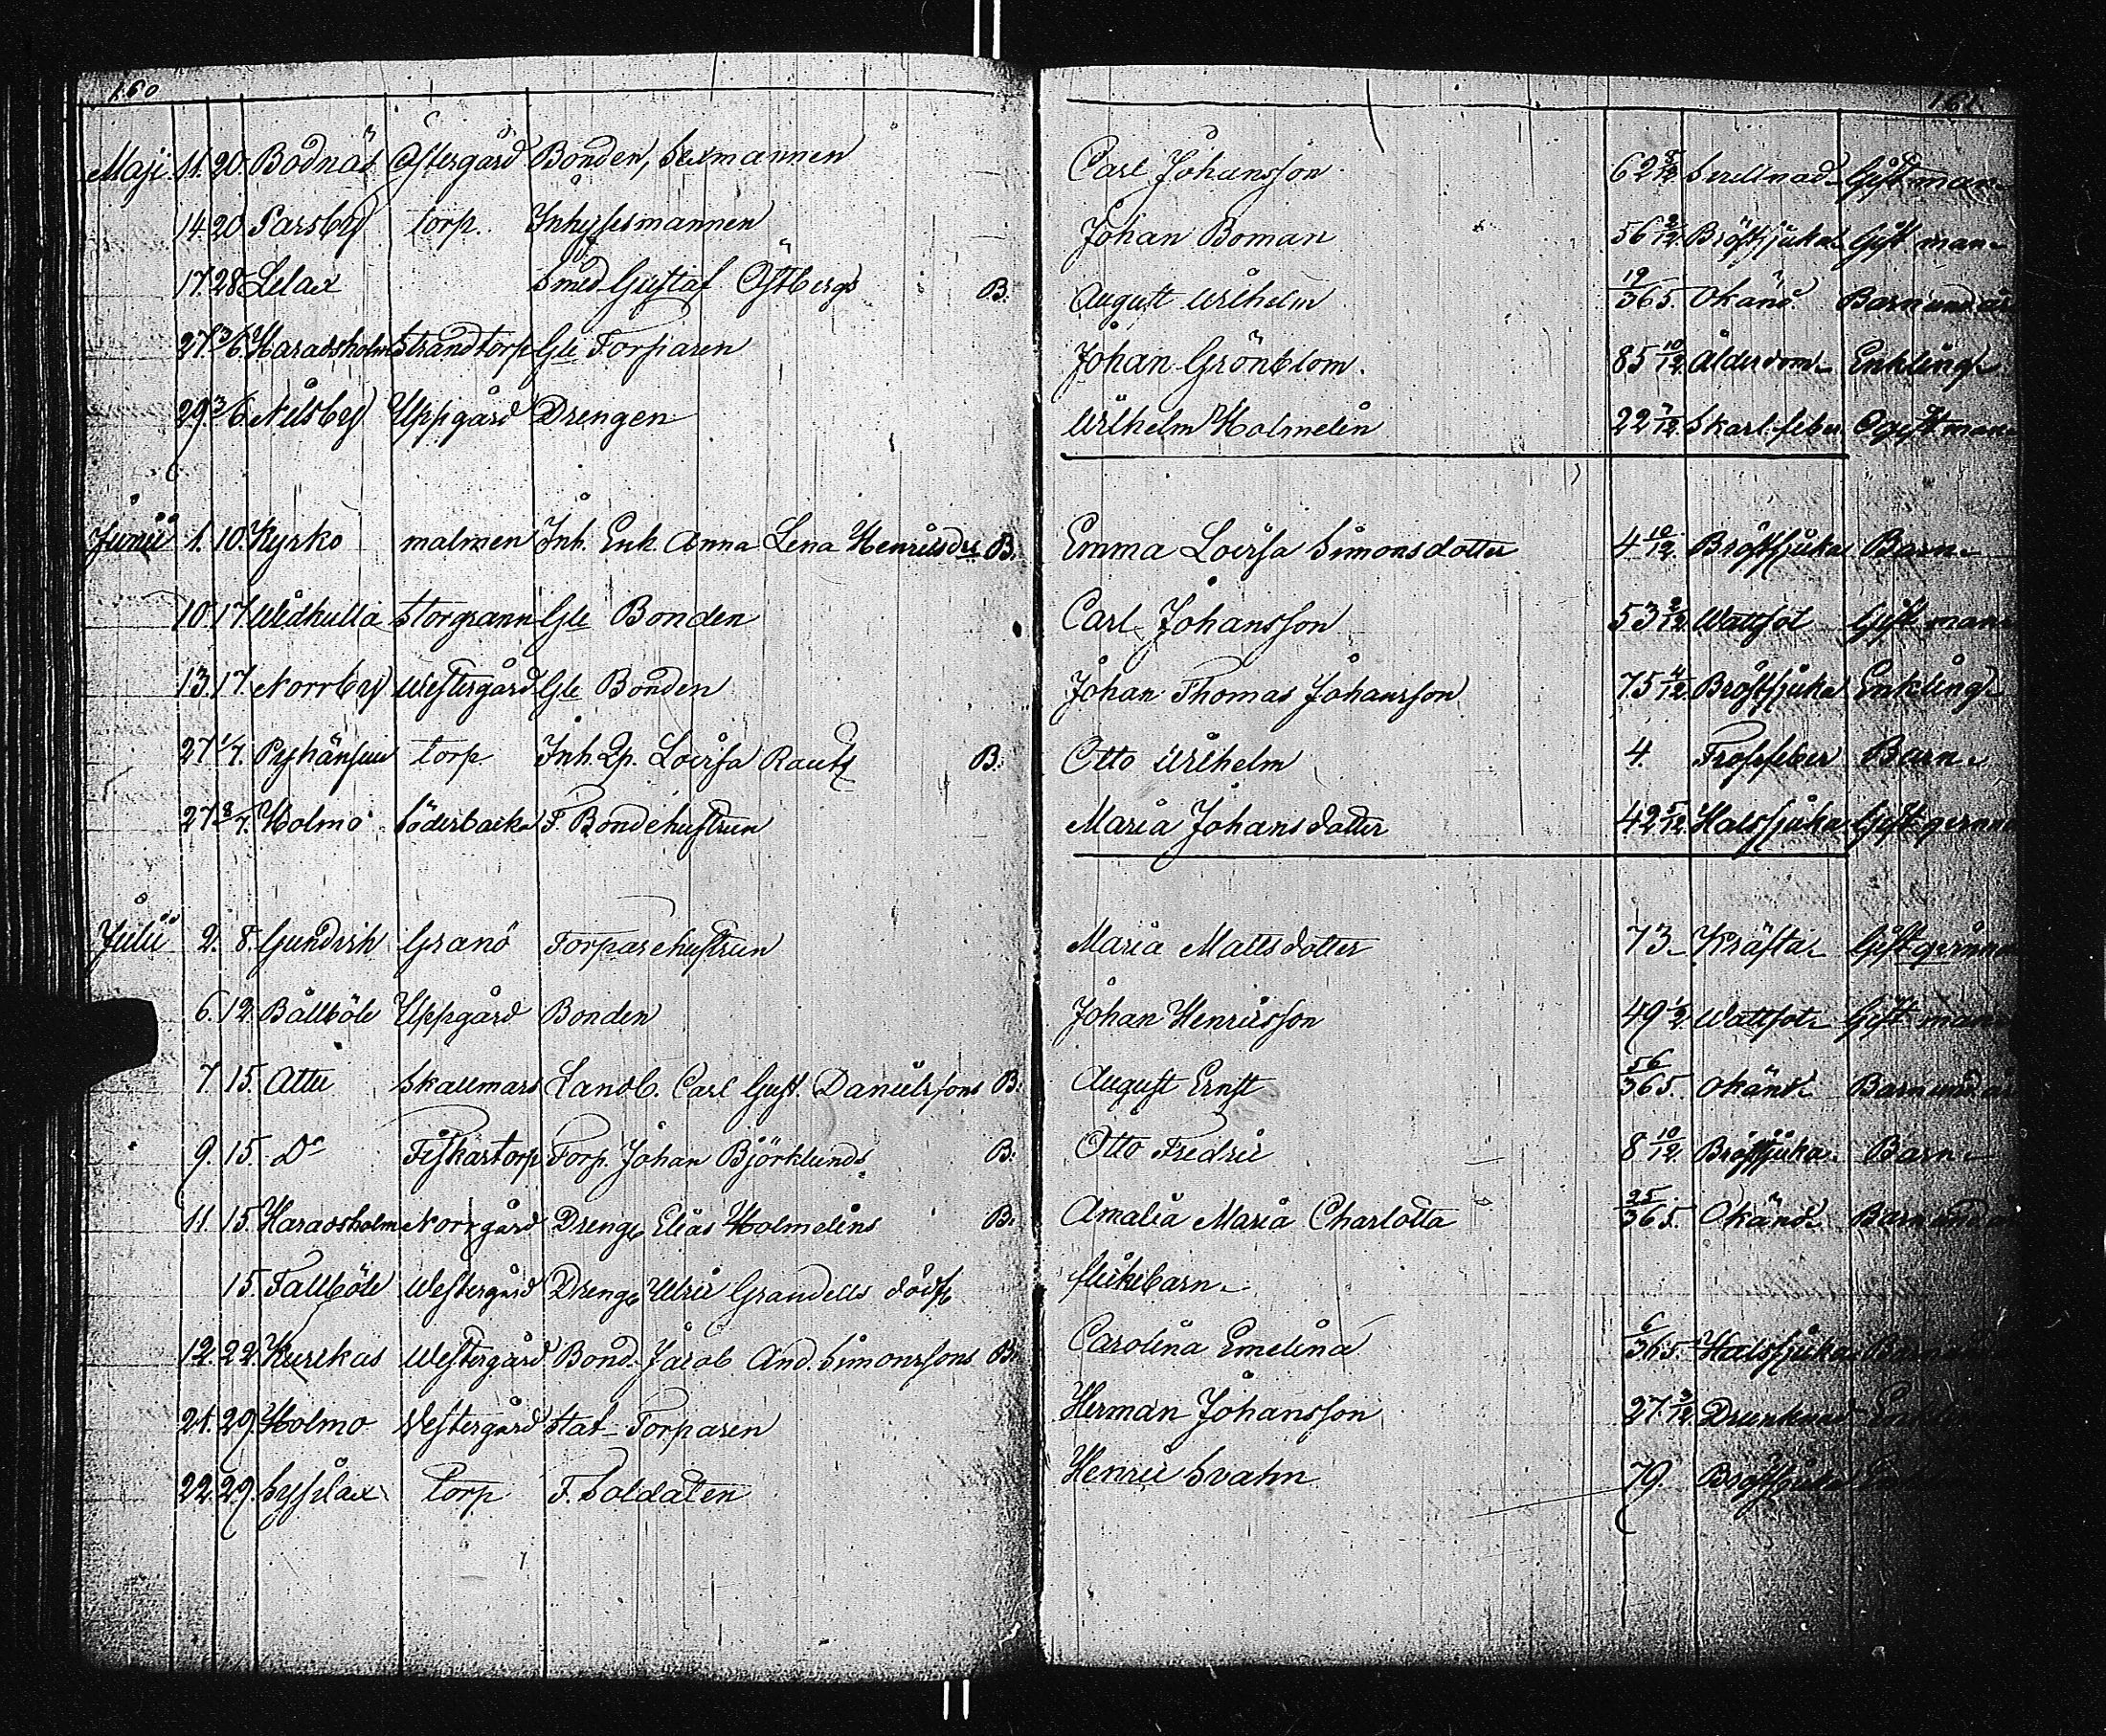 160
161.
Maji. 11. 20. Bodnäs Östergård Bonden, Sexmannen Carl Johansson 62 8/12 Svullnad Gift man
14. 20. Parsby torp. Inhysesmannen Johan Boman 56 2/12 Bröstsjuka Gift man
17. 28. Lelax Smed Gustaf Östbergs B. August Wilhelm 19/365. Okänd. Barn und. år
27. 3/6. Haradsholm Strandtorp Gle Torparen Johan Grönblom. 85 10/12 Ålderdom Enkling
29. 3/6. Nilsby Uppgård Drengen Wilhelm Holmelin 22 7/12 Skarl. feber Ogift man
Junii 1. 10. Kyrko malmen Inh. Enk. Anna Lena Henricsdr B. Emma Lovisa Simonsdotter 4 10/12. Bröstsjuka Barn
10. 17. Widkulla Storgrann Gle Bonden Carl Johansson 53 2/12 Wattsot Gift man
13. 17. Norrby Westergård Gle Bonden Johan Thomas Johansson 75 4/12. Bröstsjuka Enkling
27. 1/7. torp Inh. Qp. Lovisa B. Otto Wilhelm 4. Frossfeber Barn
27. 8/7. Holmo Söderbacka F. Bondehustrun Maria Johansdotter 42 5/12 Halssjuka Gift qvinna
Julii 2. 8. Gundvik Granö Torparehustrun Maria Mattsdotter 73 Kräfta Gift qvinna
6. 12. Bållböle Uppgård Bonden Johan Henricsson 49 1/2 Wattsot Gift man
7. 15. Attu Skallmars Landb. Carl Gust. Danielssons B. August Ernst 56/365. Okänd Barn und. år
9. 15. Do Fiskartorp Torp. Johan Björklunds B. Otto Fredric 8 10/12. Bröstsjuka Barn
11. 15. Haradsholm Norrgård Dreng. Elias Holmelins B. Amalia Maria Charlotta 25/365. Okänd Barn und. år
15. Tallböle Westergård Dreng. Ulric Grandells dödf. flickebarn
12. 22. Kurckas Westergård Bond. Jacob And. Simonssons B. Carolina Emelina 6/365. Halssjuka Barn
21. 29. Holmo Westergård Stat-Torparen Herman Johansson 27 3/12 Drunknad
22. 29. Sysilax torp F. Soldaten Henric Svahn 79. Bröstsjuka